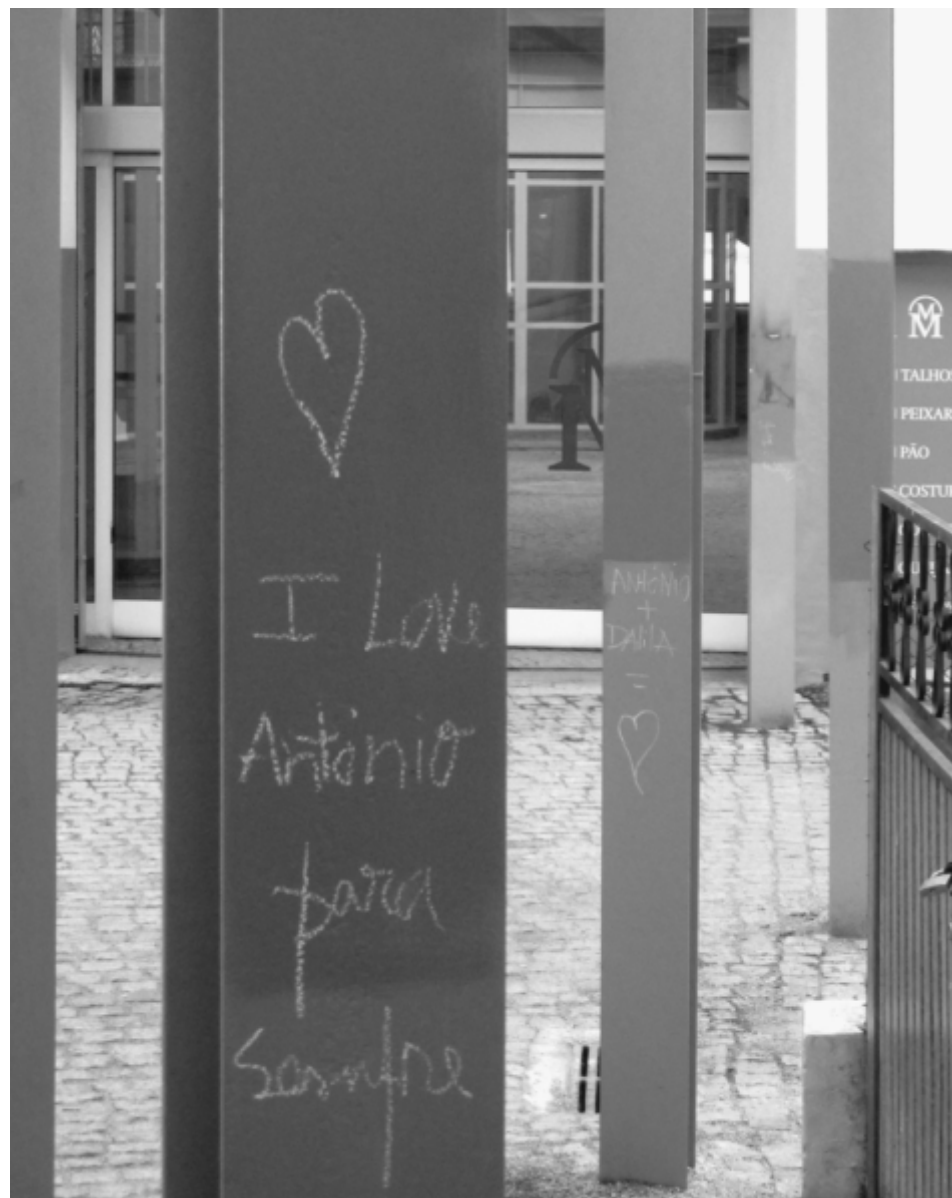 I Love
António
para
Sempre
António
+
DANIA
=
M
TALHOS
PEIXAR
PÃO
COSTUR